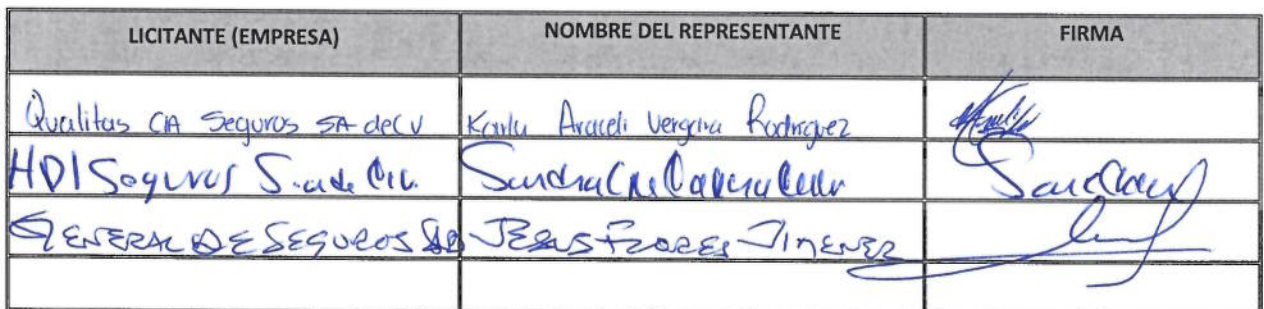 LICITANTE (EMPRESA) NOMBRE DEL REPRESENTANTE FIRMA
Qualitas CIA Seguros SA de CV Karla Araceli Vergara Rodriguez
HDI Seguros S.a de C.V. Sandra
GENERAL DE SEGUROS JESUS FLORES JIMENEZ